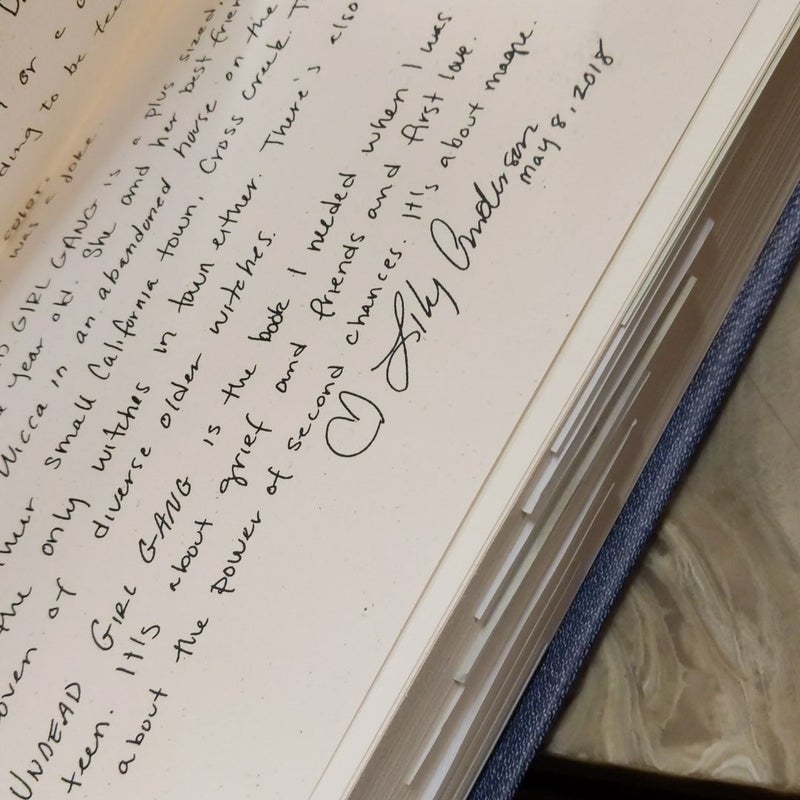 or a
ding to be tee
color.
was a joke.
GIRL GANG is a plus sized,
year old. She and her best frien
Wicca in an abandoned house on the
their small California town, Cross Creek. T
the only witches in town either. There's also
oven of diverse older witches.
UNDEAD GIRL GANG is the book I needed when I was
teen. It's about grief and friends and first love.
about the power of second chances. It's about magic.
♡ Lily Anderson
may 8, 2018